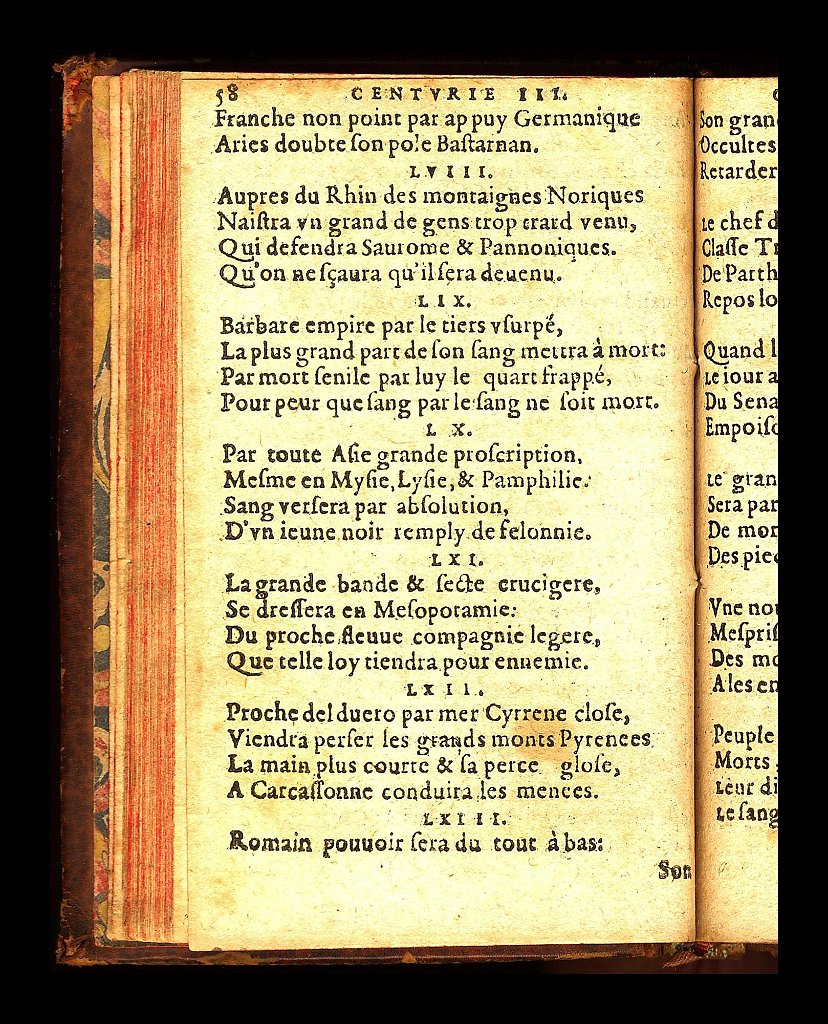 58 CENTVRIE III.
Franche non point par appuy Germanique
Aries doubte ſon pole Baſtarnan.
LVIII.
Aupres du Rhin des montaignes Noriques
Naiſtra vn grand de gens trop trard venu,
Qui defendra Saurome & Pannoniques.
Qu'on ne ſçaura qu'il ſera deuenu.
LIX.
Barbare empire par le tiers vſurpé,
La plus grand part de ſon ſang mettra à mort:
Par mort ſenile par luy le quart frappé,
Pour peur que ſang par le ſang ne ſoit mort.
LX.
Par toute Aſie grande proſcription,
Meſme en Myſie, Lyſie, & Pamphilie:
Sang verſera par abſolution,
D'vn ieune noir remply de felonnie.
LXI.
La grande bande & ſecte crucigere,
Se dreſſera en Meſopotamie:
Du proche fleuue compagnie legere,
Que telle loy tiendra pour ennemie.
LXII.
Proche del duero par mer Cyrrene cloſe,
Viendra perſer les grands monts Pyrenees
La main plus courte & ſa perce gloſe,
A Carcaſſonne conduira les menees.
LXIII.
Romain pouuoir ſera du tout à bas:
Son
Son gran
Occultes
Retarder
Le chef d
Claſſe T
De Parth
Repos lo
Quand l
Le iour a
Du Sena
Empoiſo
Le gran
Sera par
De mor
Des pie
Vne no
Meſpriſ
Des mo
A les en
Peuple
Morts
Leur di
Le ſang